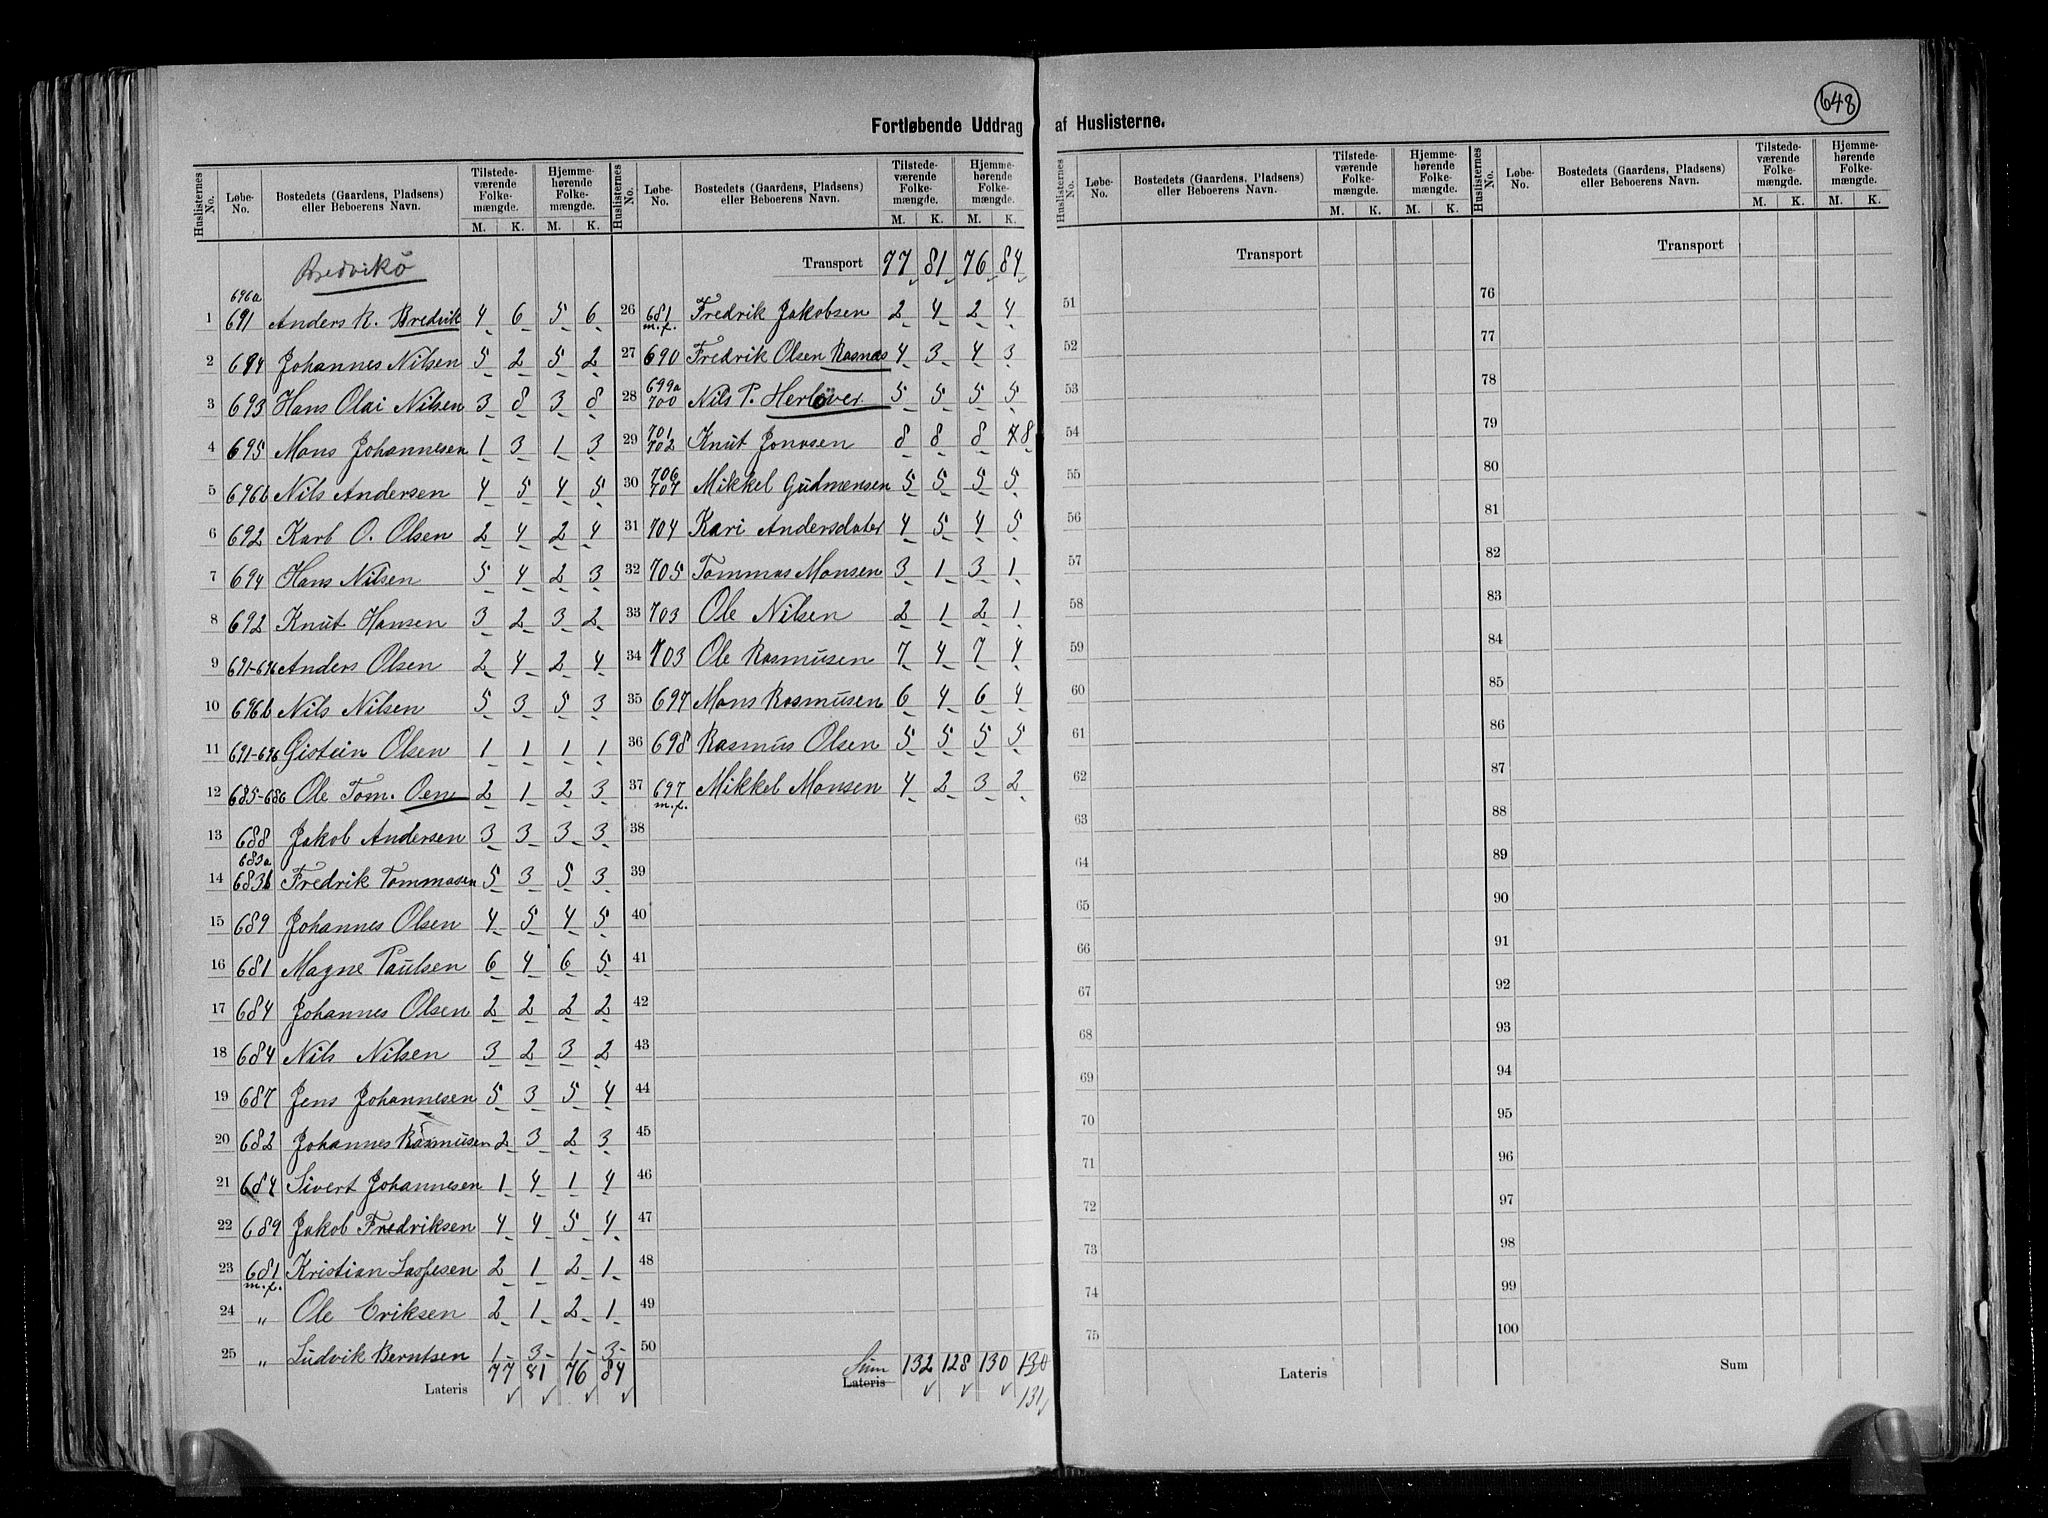 648
Fortløbende Uddrag af Huslisterne.
Huslisternes No. Løbe-No. Bostedets (Gaardens, Pladsens) eller Beboerens Navn. Tilstedeværende Folkemængde. M. K. Hjemmehørende Folkemængde. M. K.
Bredvikö
1 696a 691 Anders R. Bredvik 4 6 5 6
2 694 Johannes Nilsen 5 2 5 2
3 693 Hans Olai Nilsen 3 8 3 8
4 695 Mons Johannesen 1 3 1 3
5 696b Nils Andersen 4 5 4 5
6 692 Karl O. Olsen 2 4 2 4
7 694 Hans Nilsen 5 4 2 3
8 692 Knut Hansen 3 2 3 2
9 691-696 Anders Olsen 2 4 2 4
10 696b Nils Nilsen 5 3 5 3
11 691-696 Gistein Olsen 1 1 1 1
12 685-686 Ole Tom. Oen 2 1 2 3
13 688 Jakob Andersen 3 3 3 3
14 683a 683b Fredrik Tommasen 5 3 5 3
15 689 Johannes Olsen 4 5 4 5
16 681 Magne Paulsen 6 4 6 5
17 684 Johannes Olsen 2 2 2 2
18 684 Nils Nilsen 3 2 3 2
19 687 Jens Johannesen 5 3 5 4
20 682 Johannes Rasmusen 2 3 2 3
21 684 Sivert Johannesen 1 4 1 4
22 689 Jakob Fredriksen 4 4 5 4
23 681 m.f. Kristian Laspesen 2 1 2 1
24 „ Ole Eriksen 2 1 2 1
25 „ Ludvik Berntsen 1 3 1 3
Lateris 77 81 76 84
Huslisternes No. Løbe-No. Bostedets (Gaardens, Pladsens) eller Beboerens Navn. Tilstedeværende Folkemængde. M. K. Hjemmehørende Folkemængde. M. K.
Transport 77 81 76 84
26 681 m.f. Fredrik Jakobsen 2 4 2 4
27 690 Fredrik Olsen Rasnas 4 3 4 3
28 699a 700 Nils P. Herlöver 5 5 5 5
29 701 702 Knut Jonasen 8 8 8 7 8
30 706 707 Mikkel Gudmensen 5 5 5 5
31 704 Kari Andersdater 4 5 4 5
32 705 Tommas Monsen 3 1 3 1
33 703 Ole Nilsen 2 1 2 1
34 703 Ole Rasmusen 7 4 7 4
35 697 Mons Rasmusen 6 4 6 4
36 698 Rasmus Olsen 5 5 5 5
37 697 m.f. Mikkel Monsen 4 2 3 2
38
39
40
41
42
43
44
45
46
47
48
49
50
Sum Lateris 132 128 130 130
131
Huslisternes No. Løbe-No. Bostedets (Gaardens, Pladsens) eller Beboerens Navn. Tilstedeværende Folkemængde. M. K. Hjemmehørende Folkemængde. M. K.
Transport
51
52
53
54
55
56
57
58
59
60
61
62
63
64
65
66
67
68
69
70
71
72
73
74
75
Lateris
Huslisternes No. Løbe-No. Bostedets (Gaardens, Pladsens) eller Beboerens Navn. Tilstedeværende Folkemængde. M. K. Hjemmehørende Folkemængde. M. K.
Transport
76
77
78
79
80
81
82
83
84
85
86
87
88
89
90
91
92
93
94
95
96
97
98
99
100
Sum